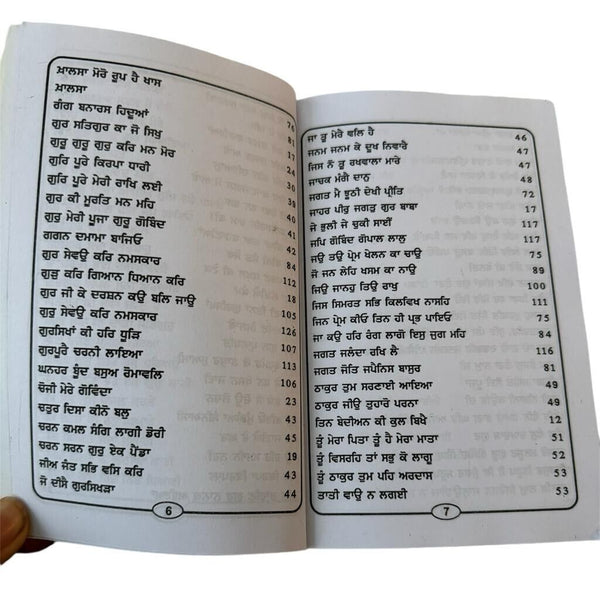 ਖ਼ਾਲਸਾ ਮੇਰੋ ਰੂਪ ਹੈ ਖਾਸ
ਖ਼ਾਲਸਾ 76
ਗੰਗ ਬਨਾਰਸ ਹਿਦੂਆਂ 81
ਗੁਰ ਸਤਿਗੁਰ ਕਾ ਜੋ ਸਿਖੁ 17
ਗੁਰੁ ਗੁਰੁ ਗੁਰੁ ਕਰਿ ਮਨ ਮੋਰ 24
ਗੁਰਿ ਪੂਰੇ ਕਿਰਪਾ ਧਾਰੀ 30
ਗੁਰਿ ਪੂਰੇ ਮੇਰੀ ਰਾਖਿ ਲਈ 38
ਗੁਰ ਕੀ ਮੂਰਤਿ ਮਨ ਮਹਿ 40
ਗੁਰੁ ਮੇਰੀ ਪੂਜਾ ਗੁਰੁ ਗੋਬਿੰਦ 41
ਗਗਨ ਦਮਾਮਾ ਬਾਜਿਓ 42
ਗੁਰ ਸੇਵਉ ਕਰਿ ਨਮਸਕਾਰ 84
ਗੁਰੁ ਕਰਿ ਗਿਆਨ ਧਿਆਨ ਕਰਿ 112
ਗੁਰ ਜੀ ਕੇ ਦਰਸ਼ਨ ਕਉ ਬਲਿ ਜਾਉ 18
ਗੁਰੁ ਸੇਵਉ ਕਰਿ ਨਮਸਕਾਰ 105
ਗੁਰਸਿਖਾਂ ਕੀ ਹਰਿ ਧੂੜਿ 126
ਗੁਰਪੂਰੈ ਚਰਨੀ ਲਾਇਆ 107
ਘਨਹਰ ਬੂੰਦ ਬਸੁਅ ਰੋਮਾਵਲਿ 113
ਚੋਜੀ ਮੇਰੇ ਗੋਵਿੰਦਾ 106
ਚਤੁਰ ਦਿਸਾ ਕੀਨੋ ਬਲੁ 23
ਚਰਨ ਕਮਲ ਸੰਗਿ ਲਾਗੀ ਡੋਰੀ 45
ਚਰਨ ਸਰਨ ਗੁਰੁ ਏਕ ਪੈਂਡਾ 45
ਜੀਅ ਜੰਤ ਸਭਿ ਵਸਿ ਕਰਿ 19
ਜੋ ਦੀਸੈ ਗੁਰਸਿਖੜਾ 44
6
ਜਾ ਤੂ ਮੇਰੈ ਵਲਿ ਹੈ 46
ਜਨਮ ਜਨਮ ਕੇ ਦੂਖ ਨਿਵਾਰੈ 47
ਜਿਸ ਨੋ ਤੂ ਰਖਵਾਲਾ ਮਾਰੇ 47
ਜਾਚਕ ਮੰਗੈ ਦਾਨੁ 48
ਜਗਤ ਮੈ ਝੂਠੀ ਦੇਖੀ ਪ੍ਰੀਤਿ 72
ਜਾਹਰ ਪੀਰੁ ਜਗਤੁ ਗੁਰ ਬਾਬਾ 17
ਜੋ ਭੁਲੀ ਜੇ ਚੁਕੀ ਸਾਈਂ 117
ਜਪਿ ਗੋਬਿੰਦ ਗੋਪਾਲ ਲਾਲੁ 117
ਜਉ ਤਉ ਪ੍ਰੇਮ ਖੇਲਨ ਕਾ ਚਾਉ 75
ਜੋ ਜਨ ਲੇਹਿ ਖਸਮ ਕਾ ਨਾਉ 89
ਜਿਉ ਜਾਨਤੁ ਤਿਉ ਰਾਖੁ 100
ਜਿਸ ਸਿਮਰਤ ਸਭਿ ਕਿਲਵਿਖ ਨਾਸਹਿ 111
ਜਿਨ ਪ੍ਰੇਮ ਕੀਓ ਤਿਨ ਹੀ ਪ੍ਰਭੁ ਪਾਇਓ 75
ਜਾ ਕਉ ਹਰਿ ਰੰਗ ਲਾਗੋ ਇਸੁ ਜੁਗ ਮਹਿ 84
ਜਗਤ ਜਲੰਦਾ ਰਖਿ ਲੈ 116
ਜਗਤ ਜੋਤਿ ਜਪੈਨਿਸ ਬਾਸੁਰ 84
ਠਾਕੁਰ ਤੁਮ ਸਰਣਾਈ ਆਇਆ 49
ਠਾਕੁਰ ਜੀਉ ਤੁਹਾਰੋ ਪਰਨਾ 49
ਤਿਨ ਬੇਦੀਅਨ ਕੀ ਕੁਲ ਬਿਖੈ 12
ਤੂੰ ਮੇਰਾ ਪਿਤਾ ਤੂੰ ਹੈ ਮੇਰਾ ਮਾਤਾ 51
ਤੂੰ ਵਿਸਰਹਿ ਤਾਂ ਸਭੁ ਕੋ ਲਾਗੂ 52
ਤੂੰ ਠਾਕੁਰ ਤੁਮ ਪਹਿ ਅਰਦਾਸ 53
ਤਾਤੀ ਵਾਉ ਨ ਲਗਈ 53
7